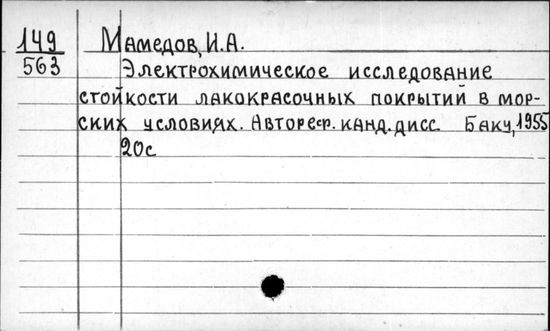 149 Мамедов, И.А.
563 Электрохимическое исследование
стойкости лакокрасочных покрытий в мор-
ских условиях. Автореф. канд. дисс. Баку, 1955
20с